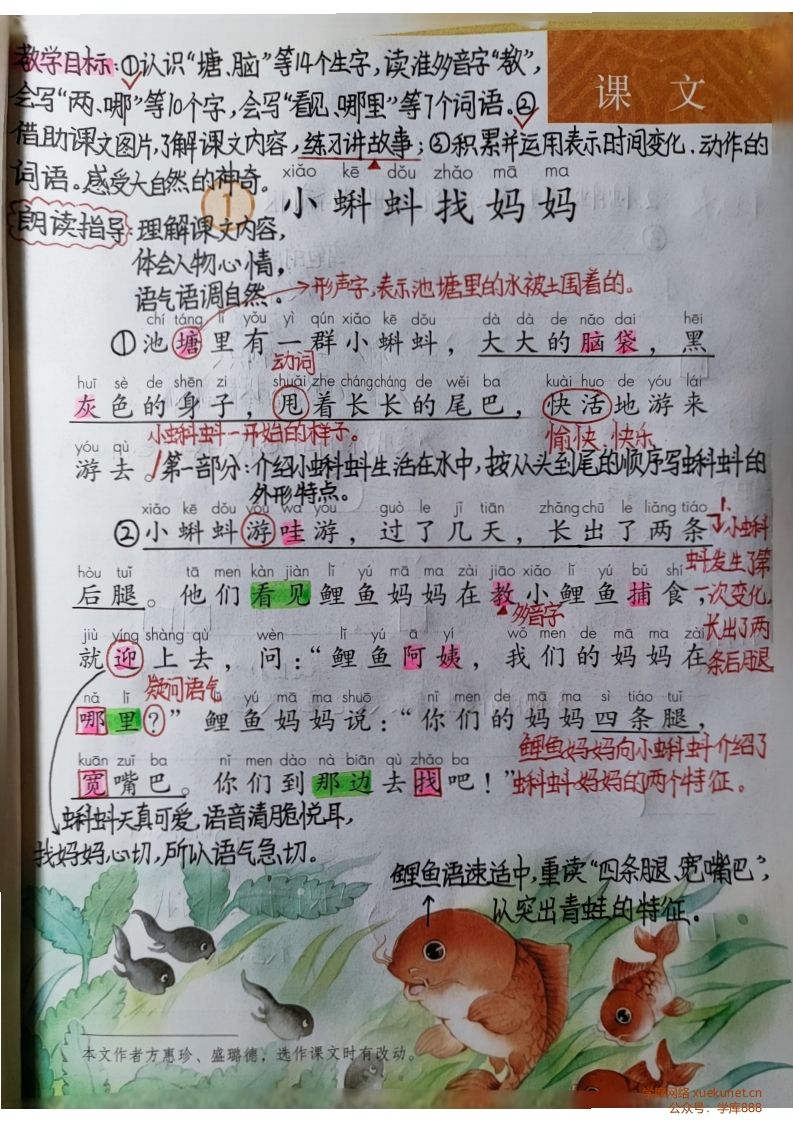 教学目标:①认识“塘、脑”等14个生字,读准多音字“教”,
会写“两、哪”等10个字,会写“看见、哪里”等7个词语。②
借助课文图片,了解课文内容,练习讲故事;③积累并运用表示时间变化、动作的
词语。感受大自然的神奇。
课 文
xiǎo kē dǒu zhǎo mā ma
1 小蝌蚪找妈妈
朗读指导:理解课文内容,
体会人物心情,
语气语调自然。
形声字,表示池塘里的水被土围着的。
chí táng lǐ yǒu yì qún xiǎo kē dǒu dà dà de nǎo dai hēi
①池塘里有一群小蝌蚪,大大的脑袋,黑
动词
huī sè de shēn zi shuǎi zhe cháng cháng de wěi ba kuài huo de yóu lái
灰色的身子,甩着长长的尾巴,快活地游来
小蝌蚪一开始的样子。
愉快 快乐
yóu qù
游去。
第一部分:介绍小蝌蚪生活在水中,按从头到尾的顺序写蝌蚪的
外形特点。
xiǎo kē dǒu yóu wa yóu guò le jǐ tiān zhǎng chū le liǎng tiáo
②小蝌蚪游哇游,过了几天,长出了两条
hòu tuǐ tā men kàn jiàn lǐ yú mā ma zài jiāo xiǎo lǐ yú bǔ shí
后腿。他们看见鲤鱼妈妈在教小鲤鱼捕食,
小蝌
蚪发生了第
一次变化,
长出了两
条后腿
多音字
jiù yíng shàng qù wèn lǐ yú ā yí wǒ men de mā ma zài
就迎上去,问:“鲤鱼阿姨,我们的妈妈在
疑问语气
nǎ lǐ lǐ yú mā ma shuō nǐ men de mā ma sì tiáo tuǐ
哪里?”鲤鱼妈妈说:“你们的妈妈四条腿,
kuān zuǐ ba nǐ men dào nà biān qù zhǎo ba
宽嘴巴。你们到那边去找吧!”
鲤鱼妈妈向小蝌蚪介绍了
蝌蚪妈妈的两个特征。
蝌蚪天真可爱,语音清脆悦耳,
找妈妈心切,所以语气急切。
鲤鱼语速适中,重读“四条腿、宽嘴巴”,
以突出青蛙的特征。
本文作者方惠珍、盛璐德,选作课文时有改动。
学库网络 xuekunet.cn
公众号:学库888